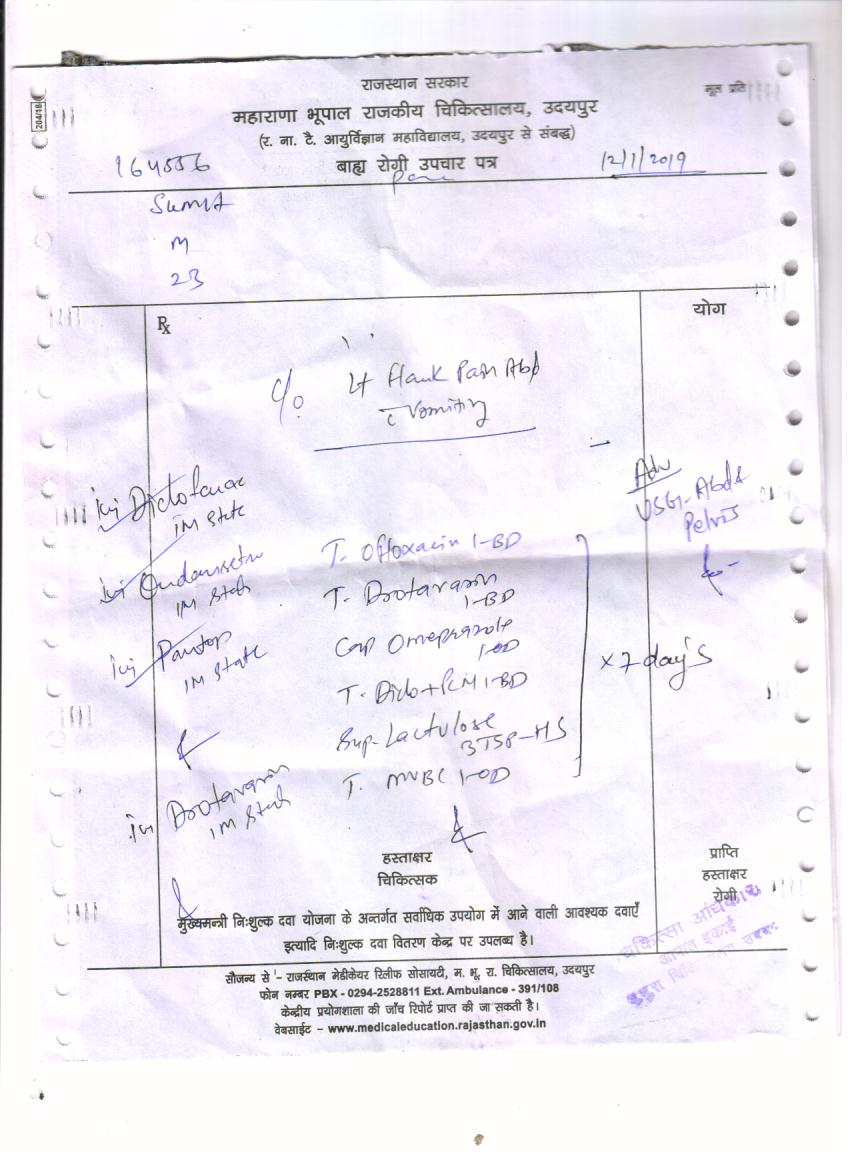 राजस्थान सरकार
मूल प्रति
204/18
महाराणा भूपाल राजकीय चिकित्सालय, उदयपुर
(र. ना. टै. आयुर्विज्ञान महाविद्यालय, उदयपुर से संबद्ध)
बाह्य रोगी उपचार पत्र
12/1/2019
M
23
Rx
योग
C/o Lt Flank Pain Abd
c Vomiting
Adv
USG-Abd &
Pelvis
inj Diclofenac
IM State
inj Ondansetrn
IM Stab
inj Pantop
IM State
T. Ofloxacin 1-BD
T. Drotavarin
1-BD
Cap Omeprazole
1-OD
T. Diclo+PCM 1-BD
Syp-Lactulose
3TSP-HS
T. MVBC 1-OD
x 7 day's
inj Drotavarin
IM Stab
हस्ताक्षर
चिकित्सक
प्राप्ति
हस्ताक्षर
रोगी
मुख्यमन्त्री निःशुल्क दवा योजना के अन्तर्गत सर्वाधिक उपयोग में आने वाली आवश्यक दवाएँ
इत्यादि निःशुल्क दवा वितरण केन्द्र पर उपलब्ध है।
सौजन्य से - राजस्थान मेडीकेयर रिलीफ सोसायटी, म. भू. रा. चिकित्सालय, उदयपुर
फोन नम्बर PBX - 0294-2528811 Ext. Ambulance - 391/108
केन्द्रीय प्रयोगशाला की जाँच रिपोर्ट प्राप्त की जा सकती है।
वेबसाईट – www.medicaleducation.rajasthan.gov.in